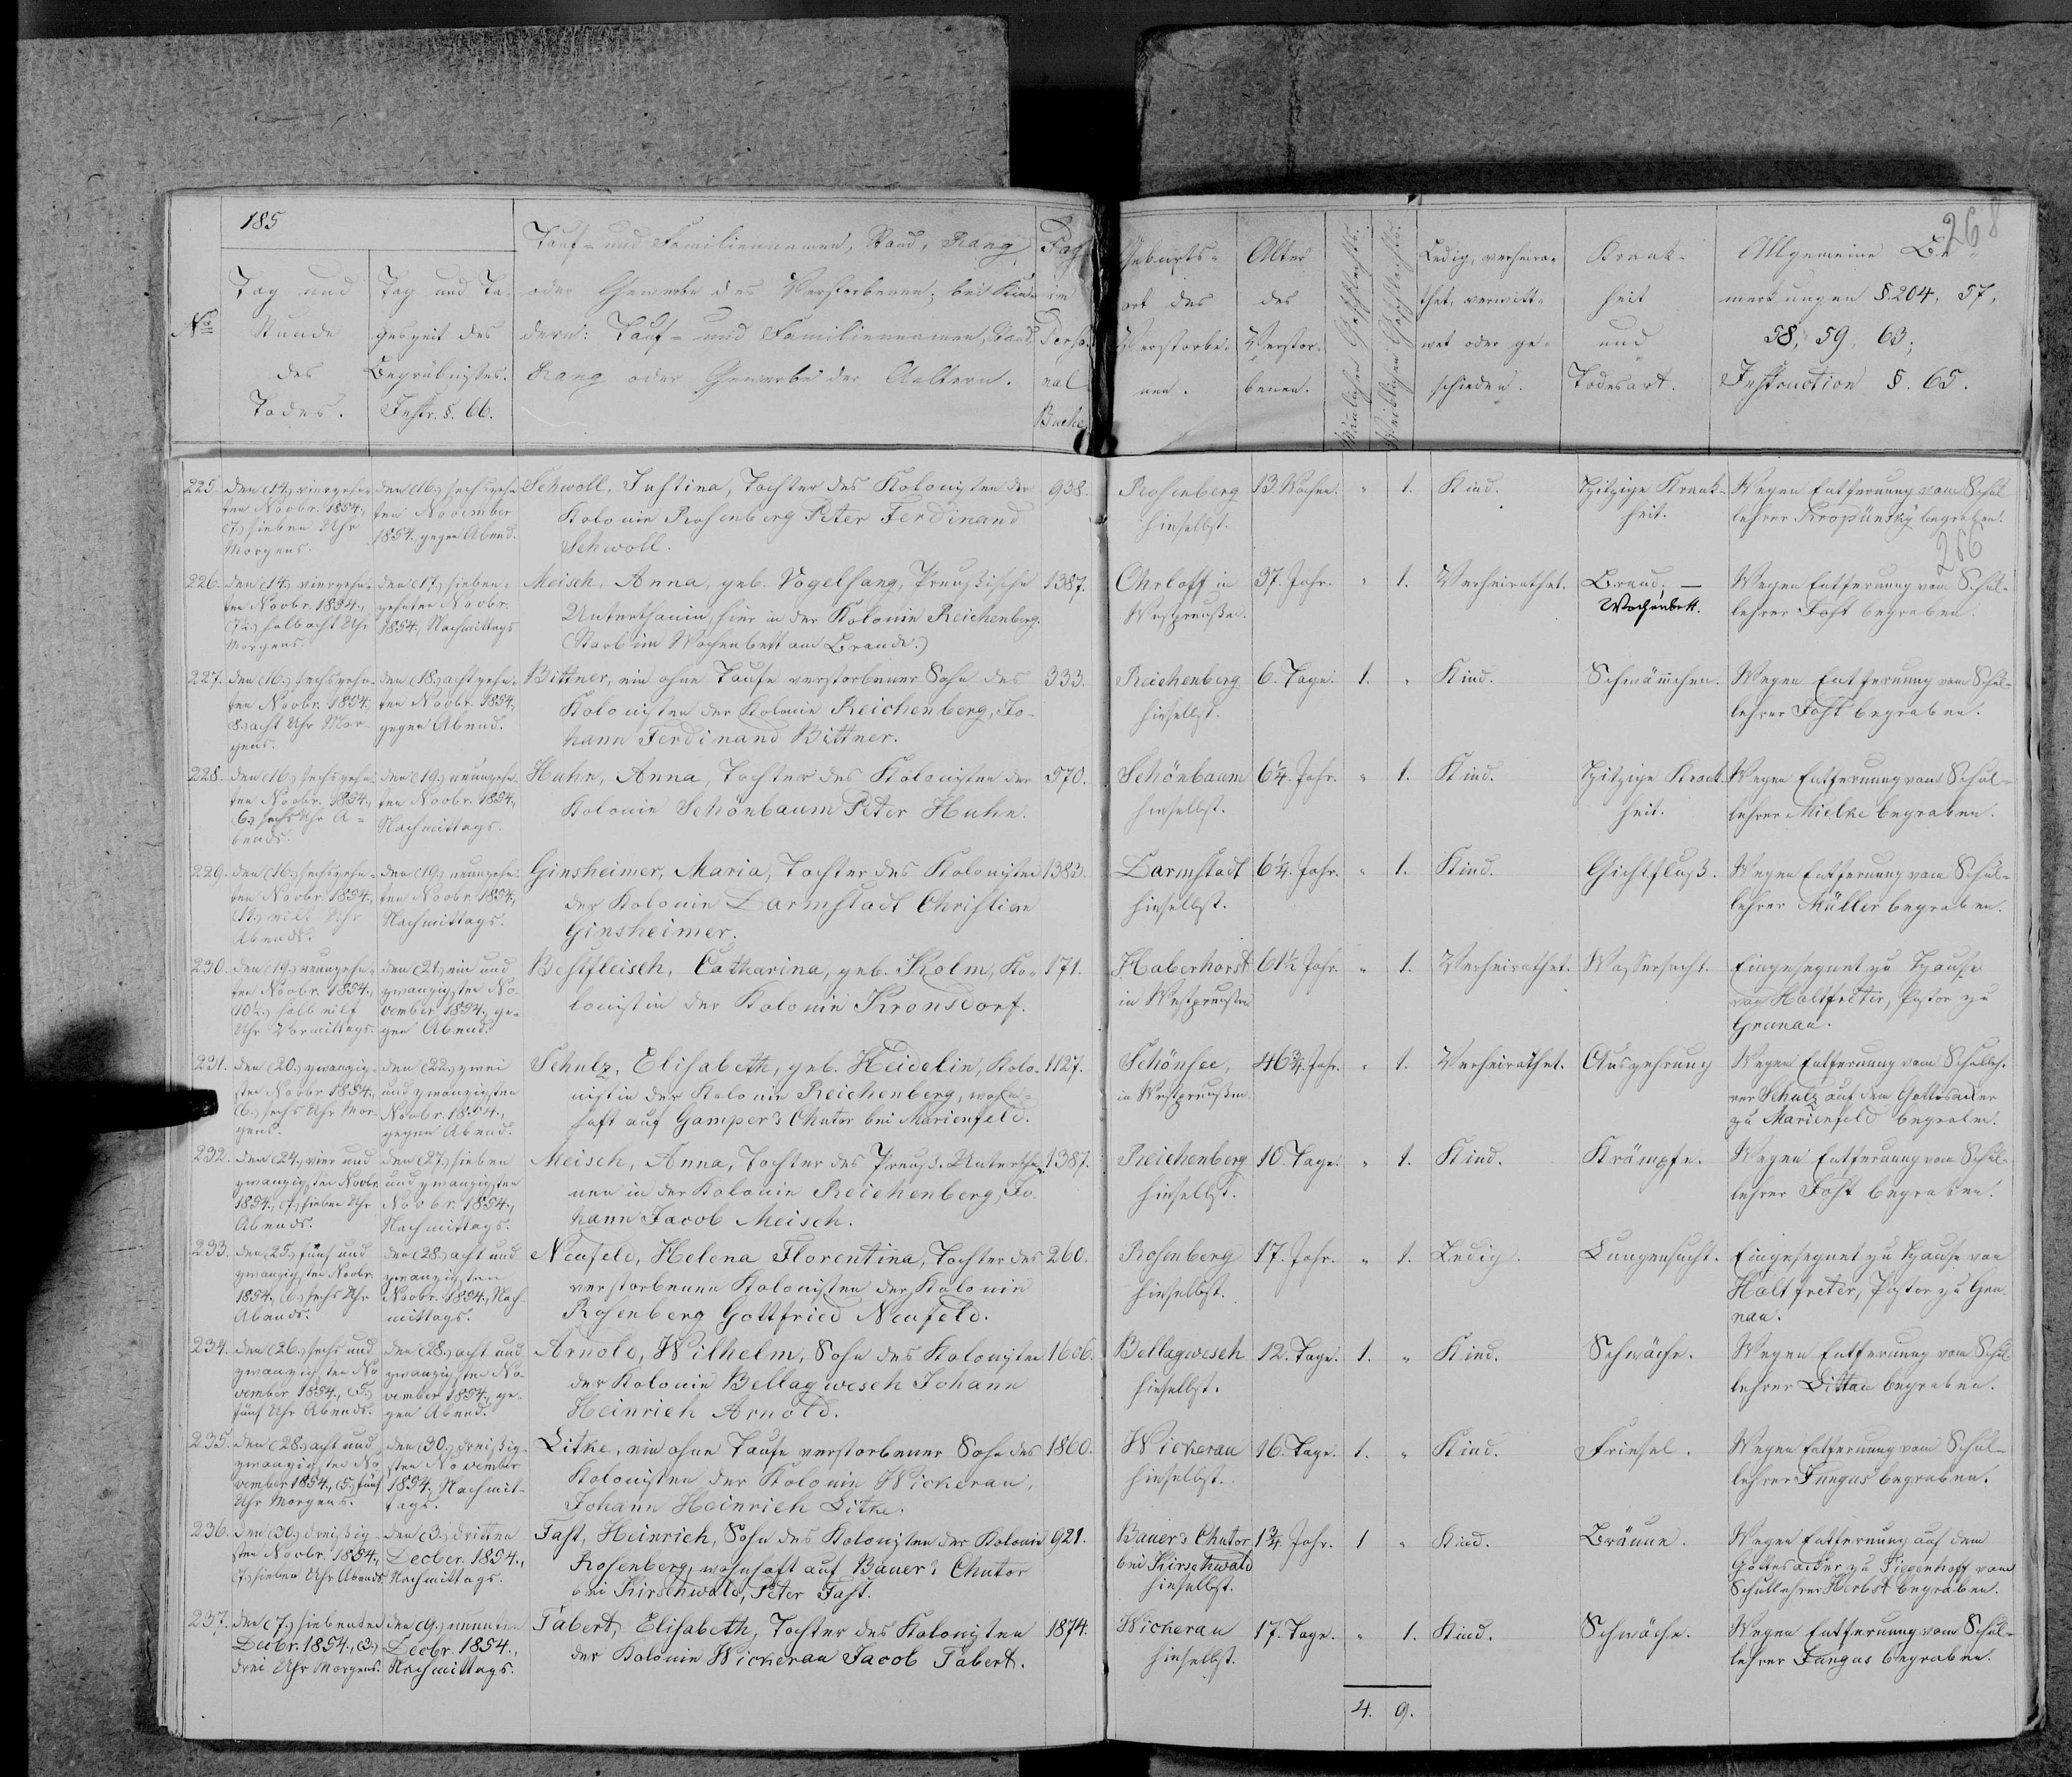 185
268
Nо
Tag und
Stunde
des
Todes.
Tag und Ta-
geszeit des
Begräbnisses.
Instr. §. 66.
Tauf- und Familiennamen, Stand, Rang
oder Gewerbe des Verstorbenen; bei Kin-
dern: Tauf- und Familiennamen, Stand
Rang oder Gewerbe der Aeltern.
Pag
im
Perso-
nal
Buche
Geburts-
ort des
Verstorbe-
nen.
Alter
des
Verstor-
benen.
Männlichen Geschlechts.
Weiblichen Geschlechts.
Ledig, verheira-
thet, verwitt-
wet oder ge-
schieden.
Krank-
heit
und
Todesart.
Allgemeine Be-
merkungen §. 204, 57,
58, 59, 63;
Instruction §. 65.
225.
den (14.) vierzehn-
ten Novbr. 1854.,
(7.) sieben Uhr
Morgens.
den (16.) sechszehn-
ten November
1854., gegen Abend.
Schwoll, Justina, Tochter des Kolonisten der
Kolonie Rosenberg Peter Ferdinand
Schwoll.
938.
Rosenberg
hieselbst.
13. Wochen.
"
1.
Kind.
Hitzige Krank-
heit.
Wegen Entfernung vom Schul-
lehrer Kropünsky begraben.
266
226.
den (14.) vierzehn-
ten Novbr. 1854.,
(7½.) halb acht Uhr
Morgens.
den (17.) sieben-
zehnten Novbr.
1854., Nachmittags
Meisch, Anna, geb. Vogelsang, Preußische
Unterthanin, hier in der Kolonie Reichenberg.
(Starb im Wochenbett am Brande.)
1387.
Ohrloff in
Westpreußen.
37. Jahr.
"
1.
Verheirathet.
Brand. —
Wochenbett.
Wegen Entfernung vom Schul-
lehrer Fast begraben.
227.
den (16.) sechszehn-
ten Novbr. 1854.,
(8.) acht Uhr Mor-
gens.
den (18.) achtzehn-
ten Novbr. 1854.,
gegen Abend.
Bittner, ein ohne Taufe verstorbener Sohn des
Kolonisten der Kolonie Reichenberg, Jo-
hann Ferdinand Bittner.
333.
Reichenberg
hieselbst.
6. Tage.
1.
"
Kind.
Schwämchen.
Wegen Entfernung vom Schul-
lehrer Fast begraben.
228.
den (16.) sechszehn-
ten Novbr. 1854.,
(6.) sechs Uhr A-
bends.
den (19.) neunzehn-
ten Novbr. 1854.,
Nachmittags.
Huhn, Anna, Tochter des Kolonisten der
Kolonie Schönbaum Peter Huhn.
570.
Schönbaum
hieselbst.
6¼. Jahr.
"
1.
Kind.
Hitzige Krank-
heit.
Wegen Entfernung vom Schul-
lehrer Mielke begraben.
229.
den (16.) sechszehn-
ten Novbr. 1854.,
(11.) eilf Uhr
Abends.
den (19.) neunzehn-
ten Novbr. 1854.,
Nachmittags.
Ginsheimer, Maria, Tochter des Kolonisten
der Kolonie Darmstadt Christian
Ginsheimer.
1383.
Darmstadt
hieselbst.
6¼. Jahr.
"
1.
Kind.
Gichtfluß.
Wegen Entfernung vom Schul-
lehrer Müller begraben.
230.
den (19.) neunzehn-
ten Novbr. 1854.,
(10½.) halb eilf
Uhr Vormittags.
den (21.) ein und
zwanzigsten No-
vember 1854., ge-
gen Abend.
Bestfleisch, Catharina, geb. Kolm, Ko-
lonistin der Kolonie Kronsdorf.
171.
Haberhorst
in Westpreußen
61½ Jahr.
"
1.
Verheirathet.
Wassersucht.
Eingesegnet zu Hause
von Holtfreter, Pastor zu
Grunau.
231.
den (20.) zwanzig-
sten Novbr 1854.,
(6.) sechs Uhr Mor-
gens.
den (22.) zwei
und zwanzigsten
Novbr. 1854.,
gegen Abend.
Schulz, Elisabeth, geb. Heidelin, Kolo-
nistin der Kolonie Reichenberg, wohn-
haft auf Gamper's Chutor bei Marienfeld.
1127.
Schönsee,
in Westpreußen.
46¾. Jahr.
"
1.
Verheirathet.
Auszehrung
Wegen Entfernung vom Schulleh-
rer Schulz auf dem Gottesacker
zu Marienfeld begraben.
232.
den (24.) vier und
zwanzigsten Novbr.
1854., (7.) sieben Uhr
Abends.
den (27.) sieben
und zwanzigsten
Novbr. 1854.,
Nachmittags.
Meisch, Anna, Tochter des Preuß. Untertha-
nen in der Kolonie Reichenberg, Jo-
hann Jacob Meisch.
1387.
Reichenberg
hieselbst.
10. Tage.
"
1.
Kind.
Krämpfe.
Wegen Entfernung vom Schul-
lehrer Fast begraben.
233.
den (25.) fünf und
zwanzigsten Novbr.
1854., (6.) sechs Uhr
Abends.
den (28.) acht und
zwanzigsten
Novbr. 1854., Nach-
mittags.
Neufeld, Helena Florentina, Tochter des
verstorbenen Kolonisten der Kolonie
Rosenberg Gottfried Neufeld.
260.
Rosenberg
hieselbst.
17. Jahr.
"
1.
Ledig.
Lungensucht.
Eingesegnet zu Hause von
Holtfreter, Pastor zu Gru-
nau.
234.
den (26.) sechs und
zwanzigsten No-
vember 1854., (5.)
fünf Uhr Abends.
den (28.) acht und
zwanzigsten No-
vember 1854., ge-
gen Abend.
Arnold, Wilhelm, Sohn des Kolonisten
der Kolonie Bellagwesch Johann
Heinrich Arnold.
1606.
Bellagwesch
hieselbst.
12. Tage.
1.
"
Kind.
Schwäche.
Wegen Entfernung vom Schul-
lehrer Dittau begraben.
235.
den (28.) acht und
zwanzigsten No-
vember 1854., (5.) fünf
Uhr Morgens.
den (30.) dreißig-
sten November
1854., Nachmit-
tags.
Litke, ein ohne Taufe verstorbener Sohn des
Kolonisten der Kolonie Wickerau,
Johann Heinrich Litke.
1860.
Wickerau
hieselbst.
16. Tage.
1.
"
Kind.
Friesel.
Wegen Entfernung vom Schul-
lehrer Fungus begraben.
236.
den (30.) dreißig-
sten Novbr. 1854.,
(7.) sieben Uhr Abends.
den (3.) dritten
Decber. 1854.,
Nachmittags.
Fast, Heinrich, Sohn des Kolonisten der Kolonie
Rosenberg, wohnhaft auf Bauer's Chutor
bei Kirschwald, Peter Fast.
921.
Bauer's Chutor
bei Kirschwald
hieselbst.
1¾. Jahr.
1
"
Kind.
Bräune.
Wegen Entfernung auf dem
Gottesacker zu Tiegenhoff vom
Schullehrer Herbst begraben.
237.
den (7.) siebenten
Decbr. 1854., (3.)
drei Uhr Morgens.
den (9.) neunten
Decbr. 1854.,
Nachmittags.
Tabert, Elisabeth, Tochter des Kolonisten
der Kolonie Wickerau Jacob Tabert.
1874.
Wickerau
hieselbst.
17. Tage.
"
1.
Kind.
Schwäche.
Wegen Entfernung vom Schul-
lehrer Fungus begraben.
4.
9.